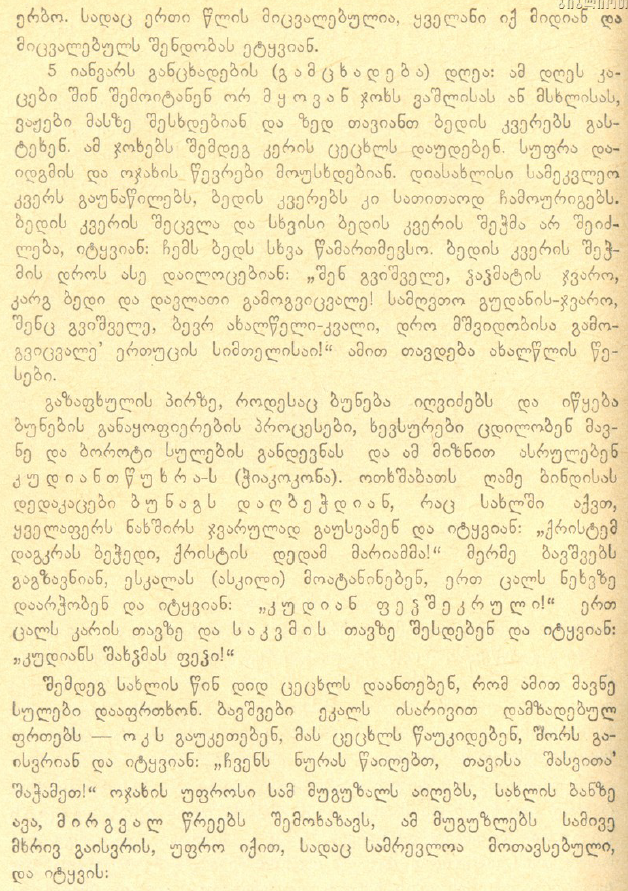 ერბო. სადაც ერთი წლის მიცვალებულია, ყველანი იქ მიდიან და
მიცვალებულს შენდობას ეტყვიან.
5 იანვარს განცხადების (გამცხადება) დღეა: ამ დღეს კა-
ცები შინ შემოიტანენ ორ მყოვან ჯოხს ვაშლისას ან მსხლისას,
ვაჟები მასზე შესხდებიან და ზედ თავიანთ ბედის კვერებს გას-
ტეხენ. ამ ჯოხებს შემდეგ კერის ცეცხლს დაუდებენ. სუფრა და-
იდგმის და ოჯახის წევრები მოუსხდებიან. დიასახლისი სამეკვლეო
კვერს გაუნაწილებს, ბედის კვერებს კი სათითაოდ ჩამოურიგებს.
ბედის კვერის შეცვლა და სხვისი ბედის კვერის შეჭმა არ შეიძ-
ლება, იტყვიან: ჩემს ბედს სხვა წამართმევსო. ბედის კვერის შეჭ-
მის დროს ასე დაილოცებიან: „შენ გვიშველე, ჴაჴმატის ჯვარო,
კარგ ბედი და დავლათი გამოგვიცვალე! სამღვთო გუდანის-ჯვარო,
შენც გვიშველე, ბევრ ახალწელი-კვალი, დრო მშვიდობისა გამო-
გვიცვალე’ ერთუცის სიმთელისაი!“ ამით თავდება ახალწლის წე-
სები.
გაზაფხულის პირზე, როდესაც ბუნება იღვიძებს და იწყება
ბუნების განაყოფიერების პროცესები, ხევსურები ცდილობენ მავ-
ნე და ბოროტი სულების განდევნას და ამ მიზნით ასრულებენ
კუდიანთწუხრა-ს (ჭიაკოკონა). ოთხშაბათს ღამე ბინდისას
დედაკაცები ბუნაგს დაღბეჭდიან, რაც სახლში აქვთ,
ყველაფერს ნახშირს ჯვარულად გაუსვამენ და იტყვიან: „ქრისტემ
დაგკრას ბეჭედი, ქრისტის დედამ მარიამმა!“ მერმე ბავშვებს
გაგზავნიან, ესკალას (ასკილი) მოატანინებენ, ერთ ცალს ნეხვზე
დაარჭობენ და იტყვიან: „კუდიან ფეჴშეკრული!“ ერთ
ცალს კარის თავზე და საკვმის თავზე შესდებენ და იტყვიან:
„კუდიანს შახჴმას ფეჴი!“
შემდეგ სახლის წინ დიდ ცეცხლს დაანთებენ, რომ ამით მავნე
სულები დააფრთხონ. ბავშვები ეკალს ისარივით დამზადებულ
ფრთებს — ოკს გაუკეთებენ, მას ცეცხლს წაუკიდებენ, შორს გა-
ისვრიან და იტყვიან: „ჩვენს ნურას წაიღებთ, თავისა შასვითა’
შაჭამეთ!“ ოჯახის უფროსი სამ მუგუზალს აიღებს, სახლის ბანზე
ავა, მირგვალ წრეებს შემოხაზავს, ამ მუგუზლებს სამივე
მხრივ გაისვრის, უფრო იქით, სადაც სამრევლოა მოთავსებული,
და იტყვის: